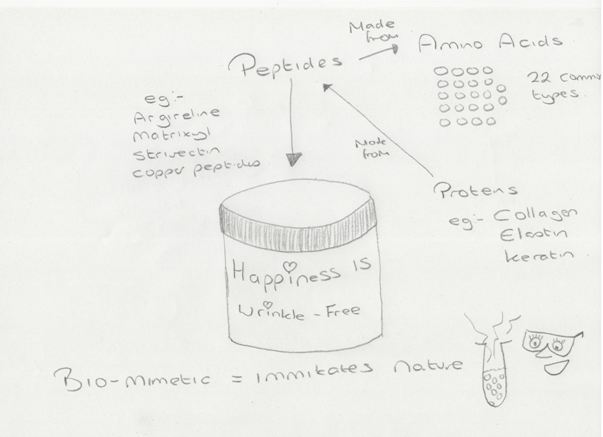 Made
from
Amino Acids
Peptides
22 comm
types.
eg:-
Argireline
Matrixyl
Strivectin
copper peptides
Made
from
Protens
eg:- Collagen
Elastin
keratin
Happiness is
Wrinkle-Free
Bio-mimetic = immitates nature